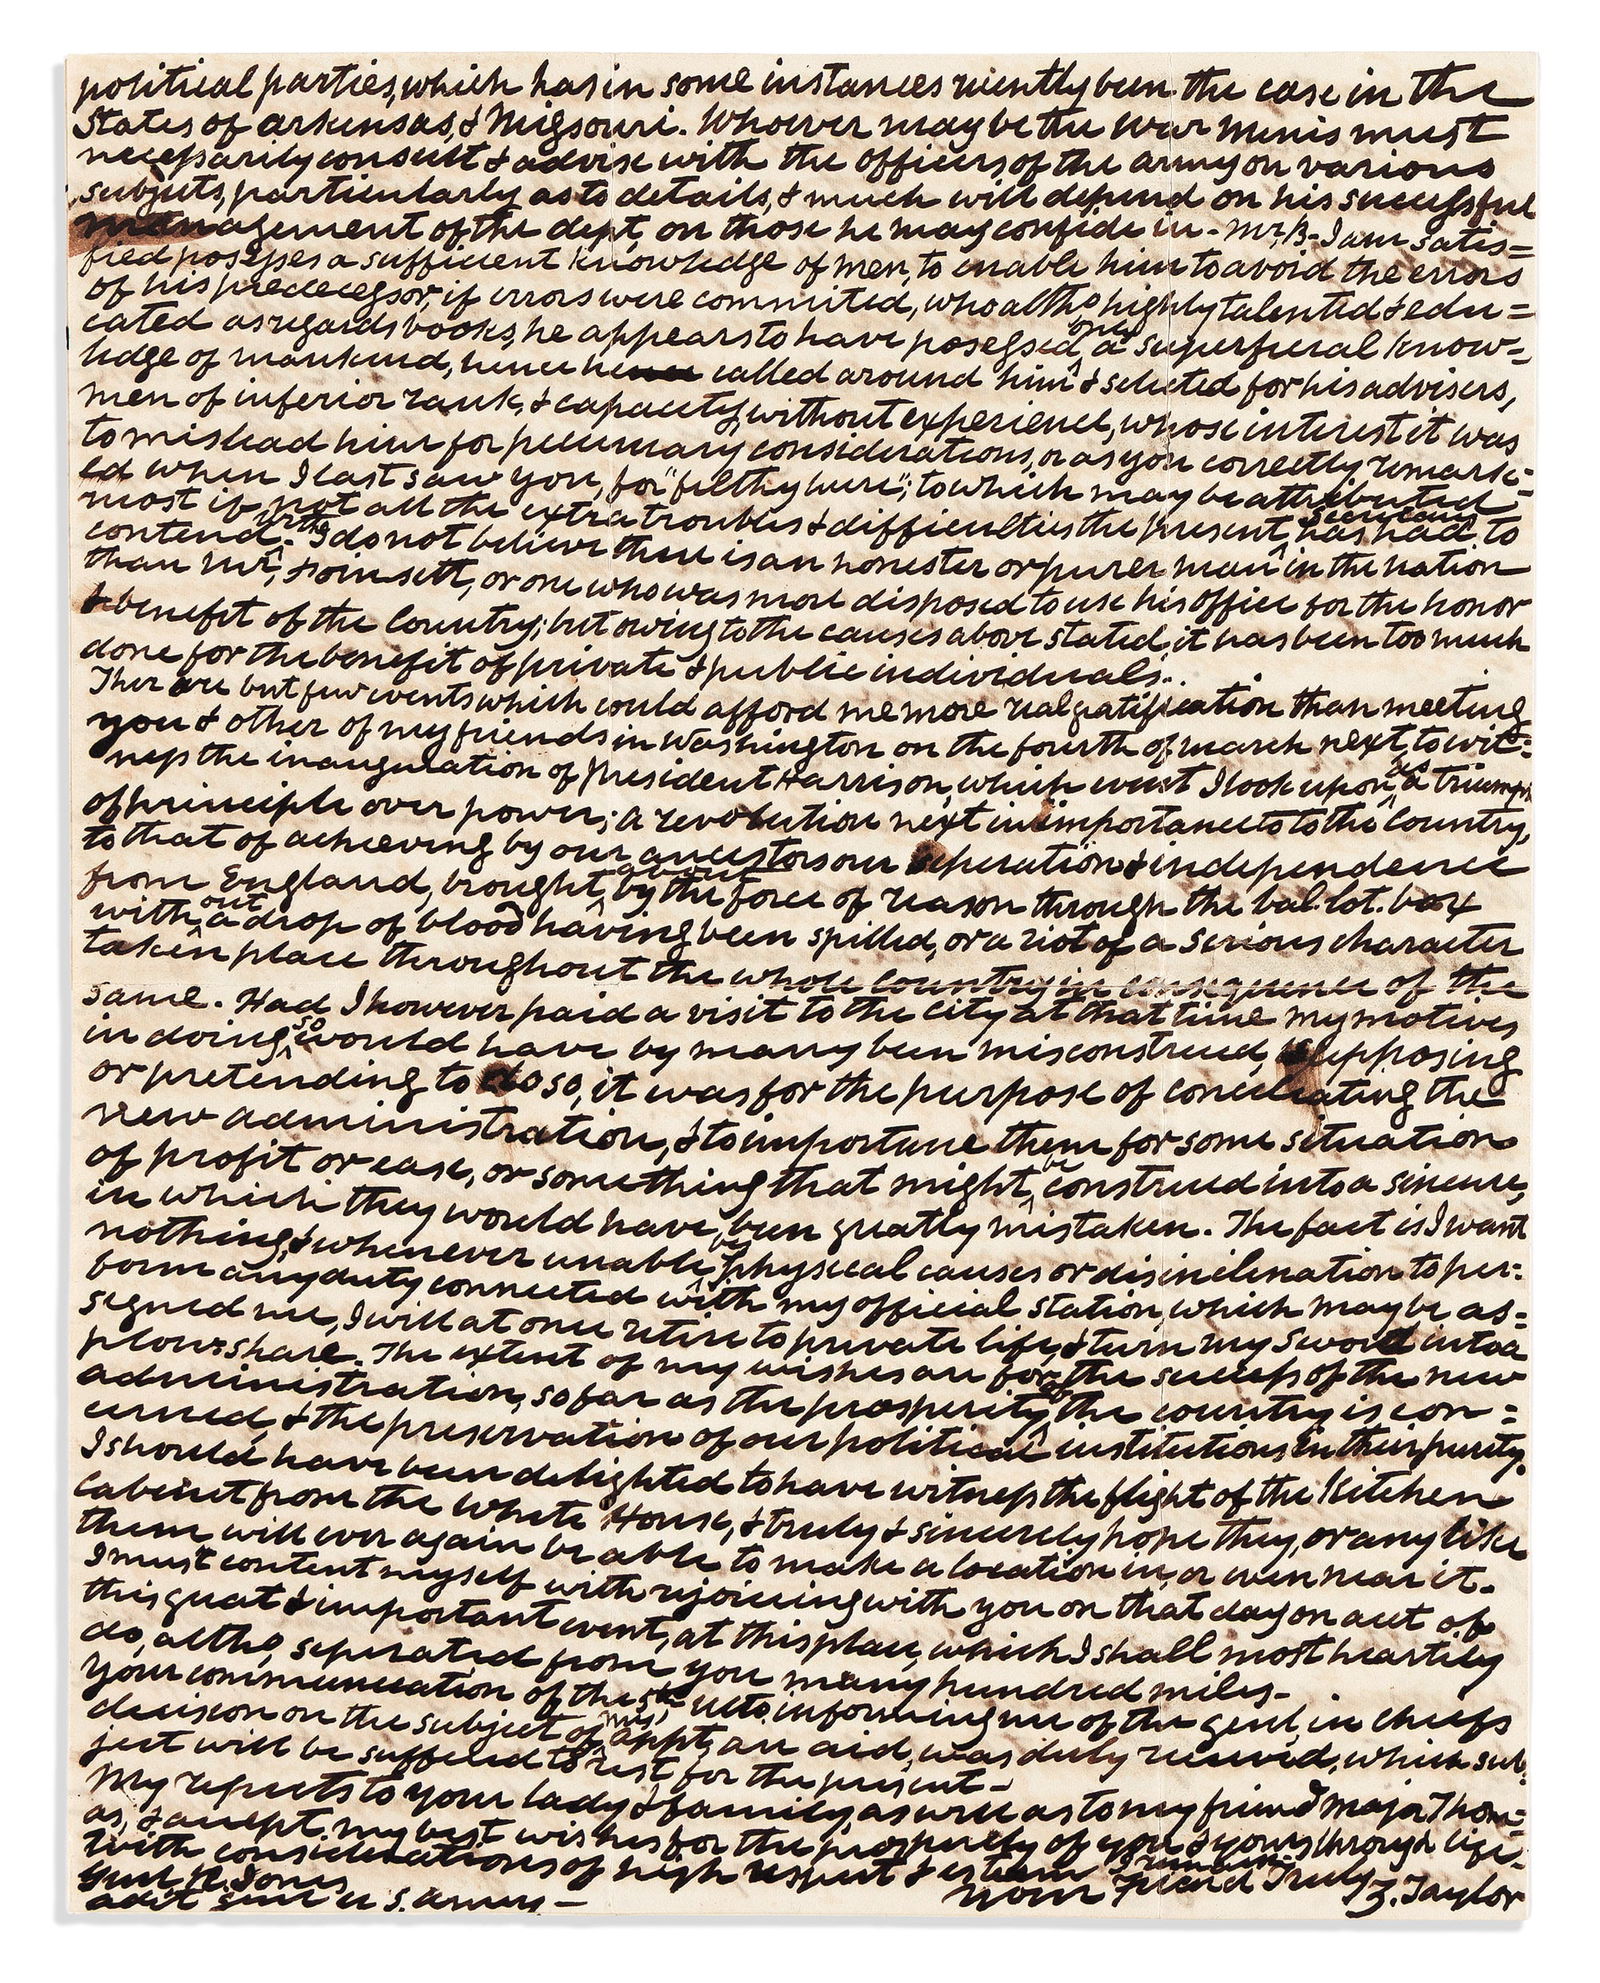 political parties, which has in some instances recently been the case in the
States of arkensas, & Missouri. Whoever may be the War Minis must
necessarily consult & advise with the officers of the army on various
subjects, particularly as to details, & much will depend on his successful
management of the dept, on those he may confide in - Mr. B. I am satis=
fied possesses a sufficient knowledge of men, to enable him to avoid the errors
of his predecessor, if errors were committed, who altho, highly talented & edu=
cated as regards books, he appears to have posessed only a superficial know=
ledge of mankind, hence hence called around him & selected for his advisers,
men of inferior rank, & capacity, without experience, whose interest it was
to mislead him for pecuniary considerations, or as you correctly remark=
ed when I last saw you, for "filthy lucre"; to which may be attributed
most if not all the extra troubles & difficulties the present Secretary has had to
contend with. I do not believe there is an honester or purer man in the nation
than Mr. Poinsett, or one who was more disposed to use his office for the honor
& benefit of the Country; but owing to the causes above stated, it has been too much
done for the benefit of private & public individuals.
Ther are but few events which could afford me more real gratification than meeting
you & other of my friends in Washington on the fourth of march next, to wit=
ness the inauguration of President Harrison, which event I look upon as a triumph
of principle over power; a revolution next in importance to the Country,
to that of achieving by our ancestors our seperation & independence
from England, brought about by the force of reason through the bal. lot. box
without a drop of blood having been spilled, or a riot of a serious character
taken place throughout the whole country in consequence of the
same. Had I however paid a visit to the City at that time my motives
in doing so would have by many been misconstrued, supposing
or pretending to do so, it was for the purpose of conciliating the
new administration, & to importune them for some situation
of profit or ease, or something that might be construed into a sinecure,
in which they would have been greatly mistaken. The fact is I want
nothing, & whenever unable by physical causes or disinclination to per=
form any duty connected with my official station, which may be as=
signed me, I will at once retire to private life, & turn my Sword into a
plow=share. The extent of my wishes are for the success of the new
administration, so far as the prosperity of the country is con=
cerned, & the preservation of our political institutions in their purity.
I should have been delighted to have witness the flight of the Kitchen
cabinet from the White House, & truly & sincerely hope they, or any like
them will ever again be able to make a location in, or even near it.
I must content myself with rejoicing with you on that day on acct of
this great & important event, at this place, which I shall most heartily
do, altho, seperated from you many hundred miles.
Your communication of the ulto. informing me of the genl, in cheefs
decision on the subject of my appt, an aid, was duly received, which sub=
ject will be suffered to rest for the present -
My respects to your lady & family, as well as to my friend Major Thom=
as, & accept my best wishes for the prosperity of you & yours through life.
With considerations of high respect & esteem I remain
Your Friend Truly
Z. Taylor
Genl. R. Jones
adjt Genl U S. army -